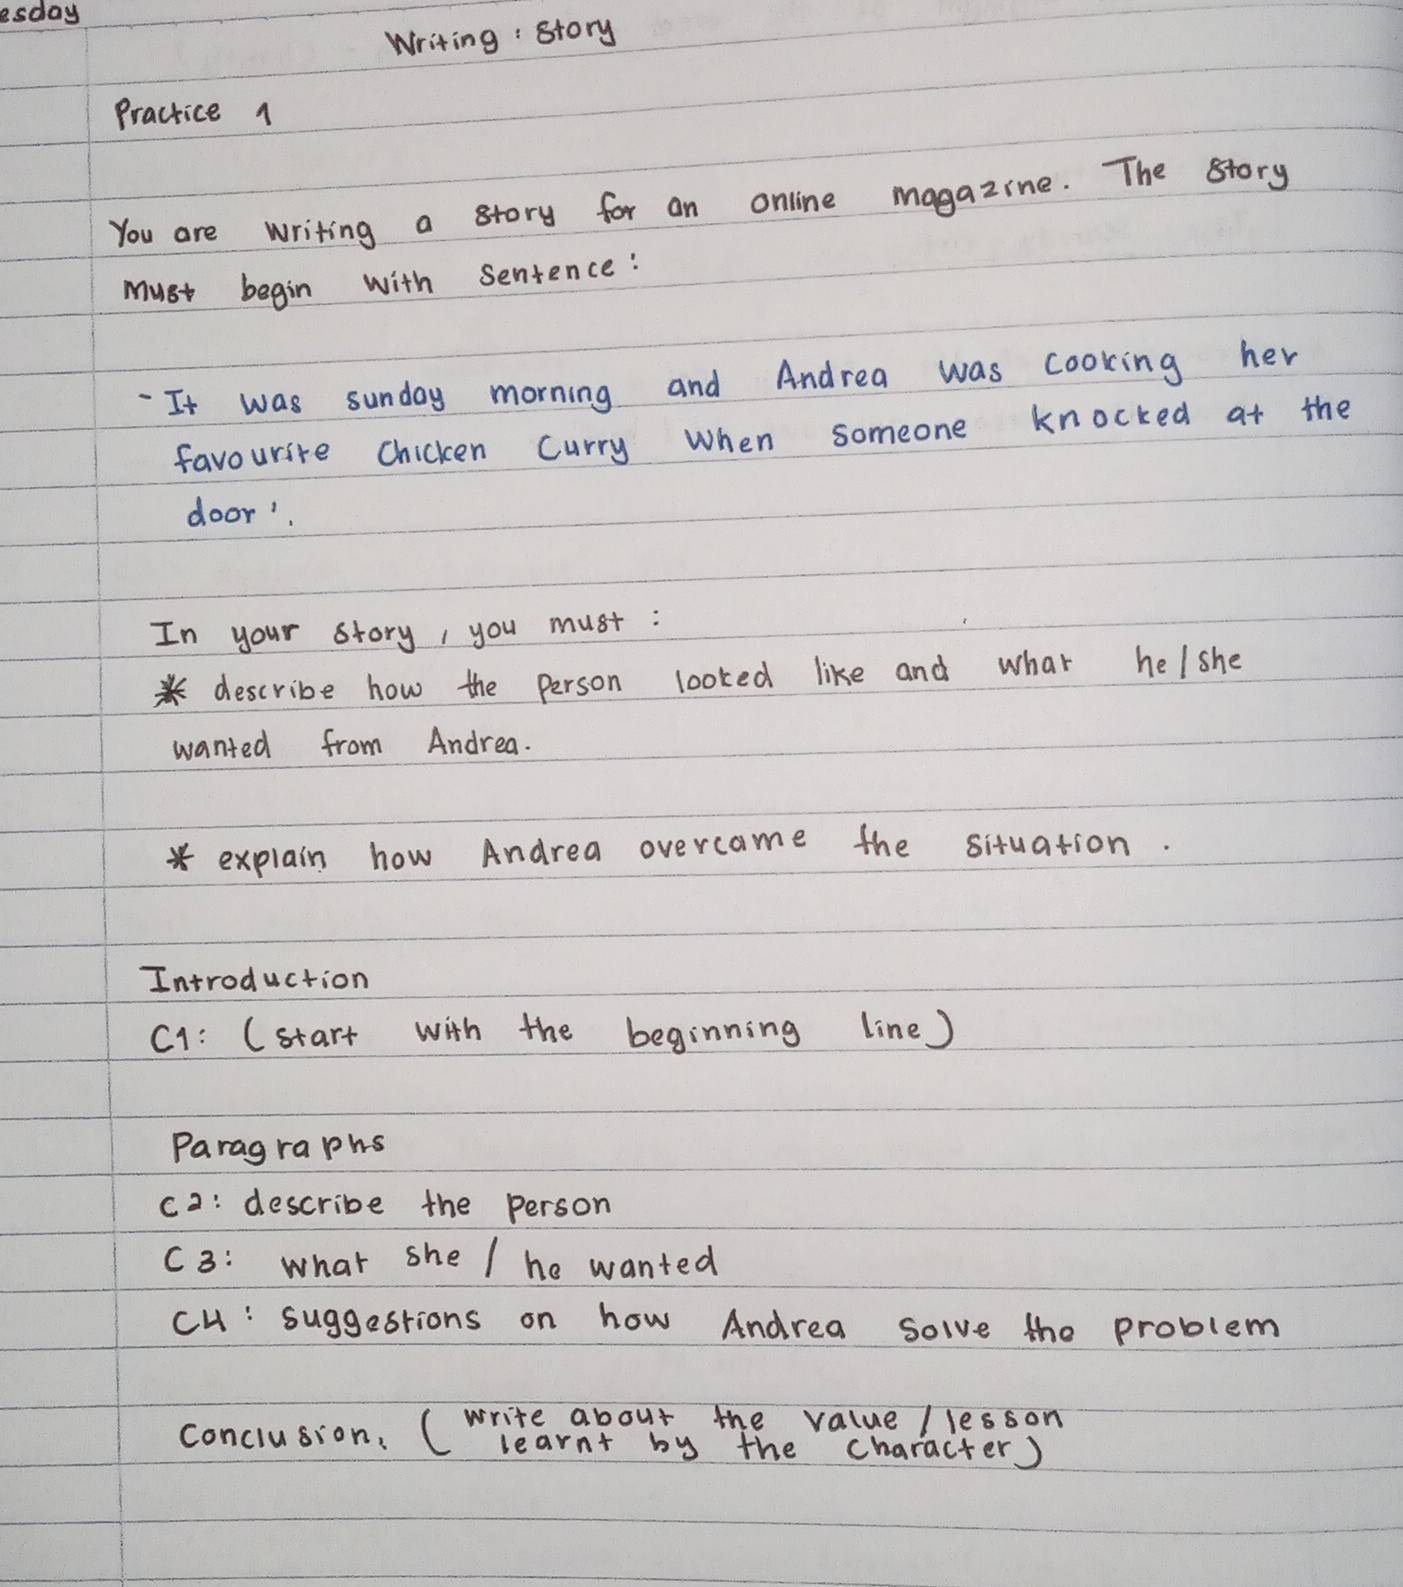 esday
Writing : Story
Practice 1
You are writing a story for an online magazine. The story
must begin with sentence :
- It was sunday morning and Andrea was cooking her
favourite chicken curry when someone knocked at the
door'.
In your story, you must :
* describe how the person looked like and what he / she
wanted from Andrea.
* explain how Andrea overcame the situation .
Introduction
C1: (start with the beginning line)
Paragraphs
C2: describe the person
C3: what she / he wanted
C4: suggestions on how Andrea solve the problem
Conclusion: (write about the value / lesson
learnt by the character)